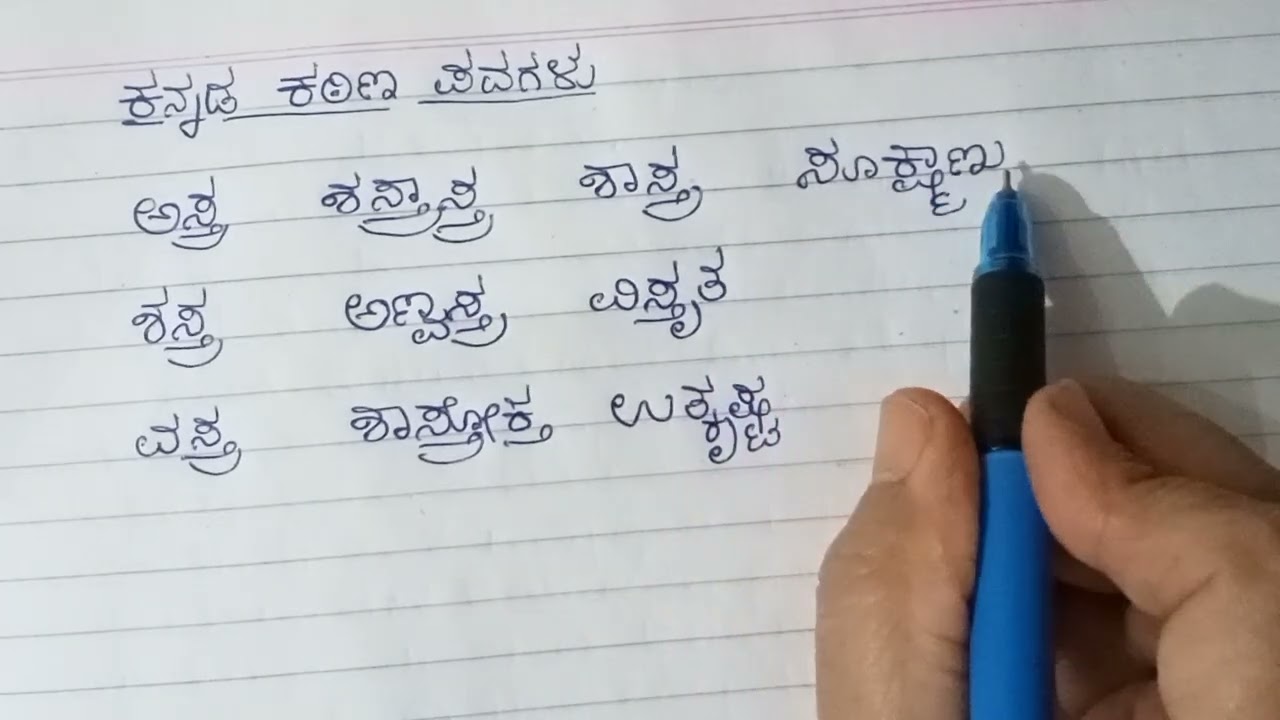 ಕನ್ನಡ ಕಠಿಣ ಪದಗಳು
ಅಸ್ತ್ರ ಶಸ್ತ್ರಾಸ್ತ್ರ ಶಾಸ್ತ್ರ ಸೂಕ್ಷ್ಮಾಣು
ಶಸ್ತ್ರ ಅಣ್ವಸ್ತ್ರ ವಿಸ್ತೃತ
ವಸ್ತ್ರ ಶಾಸ್ತ್ರೋಕ್ತ ಉತ್ಕೃಷ್ಟ